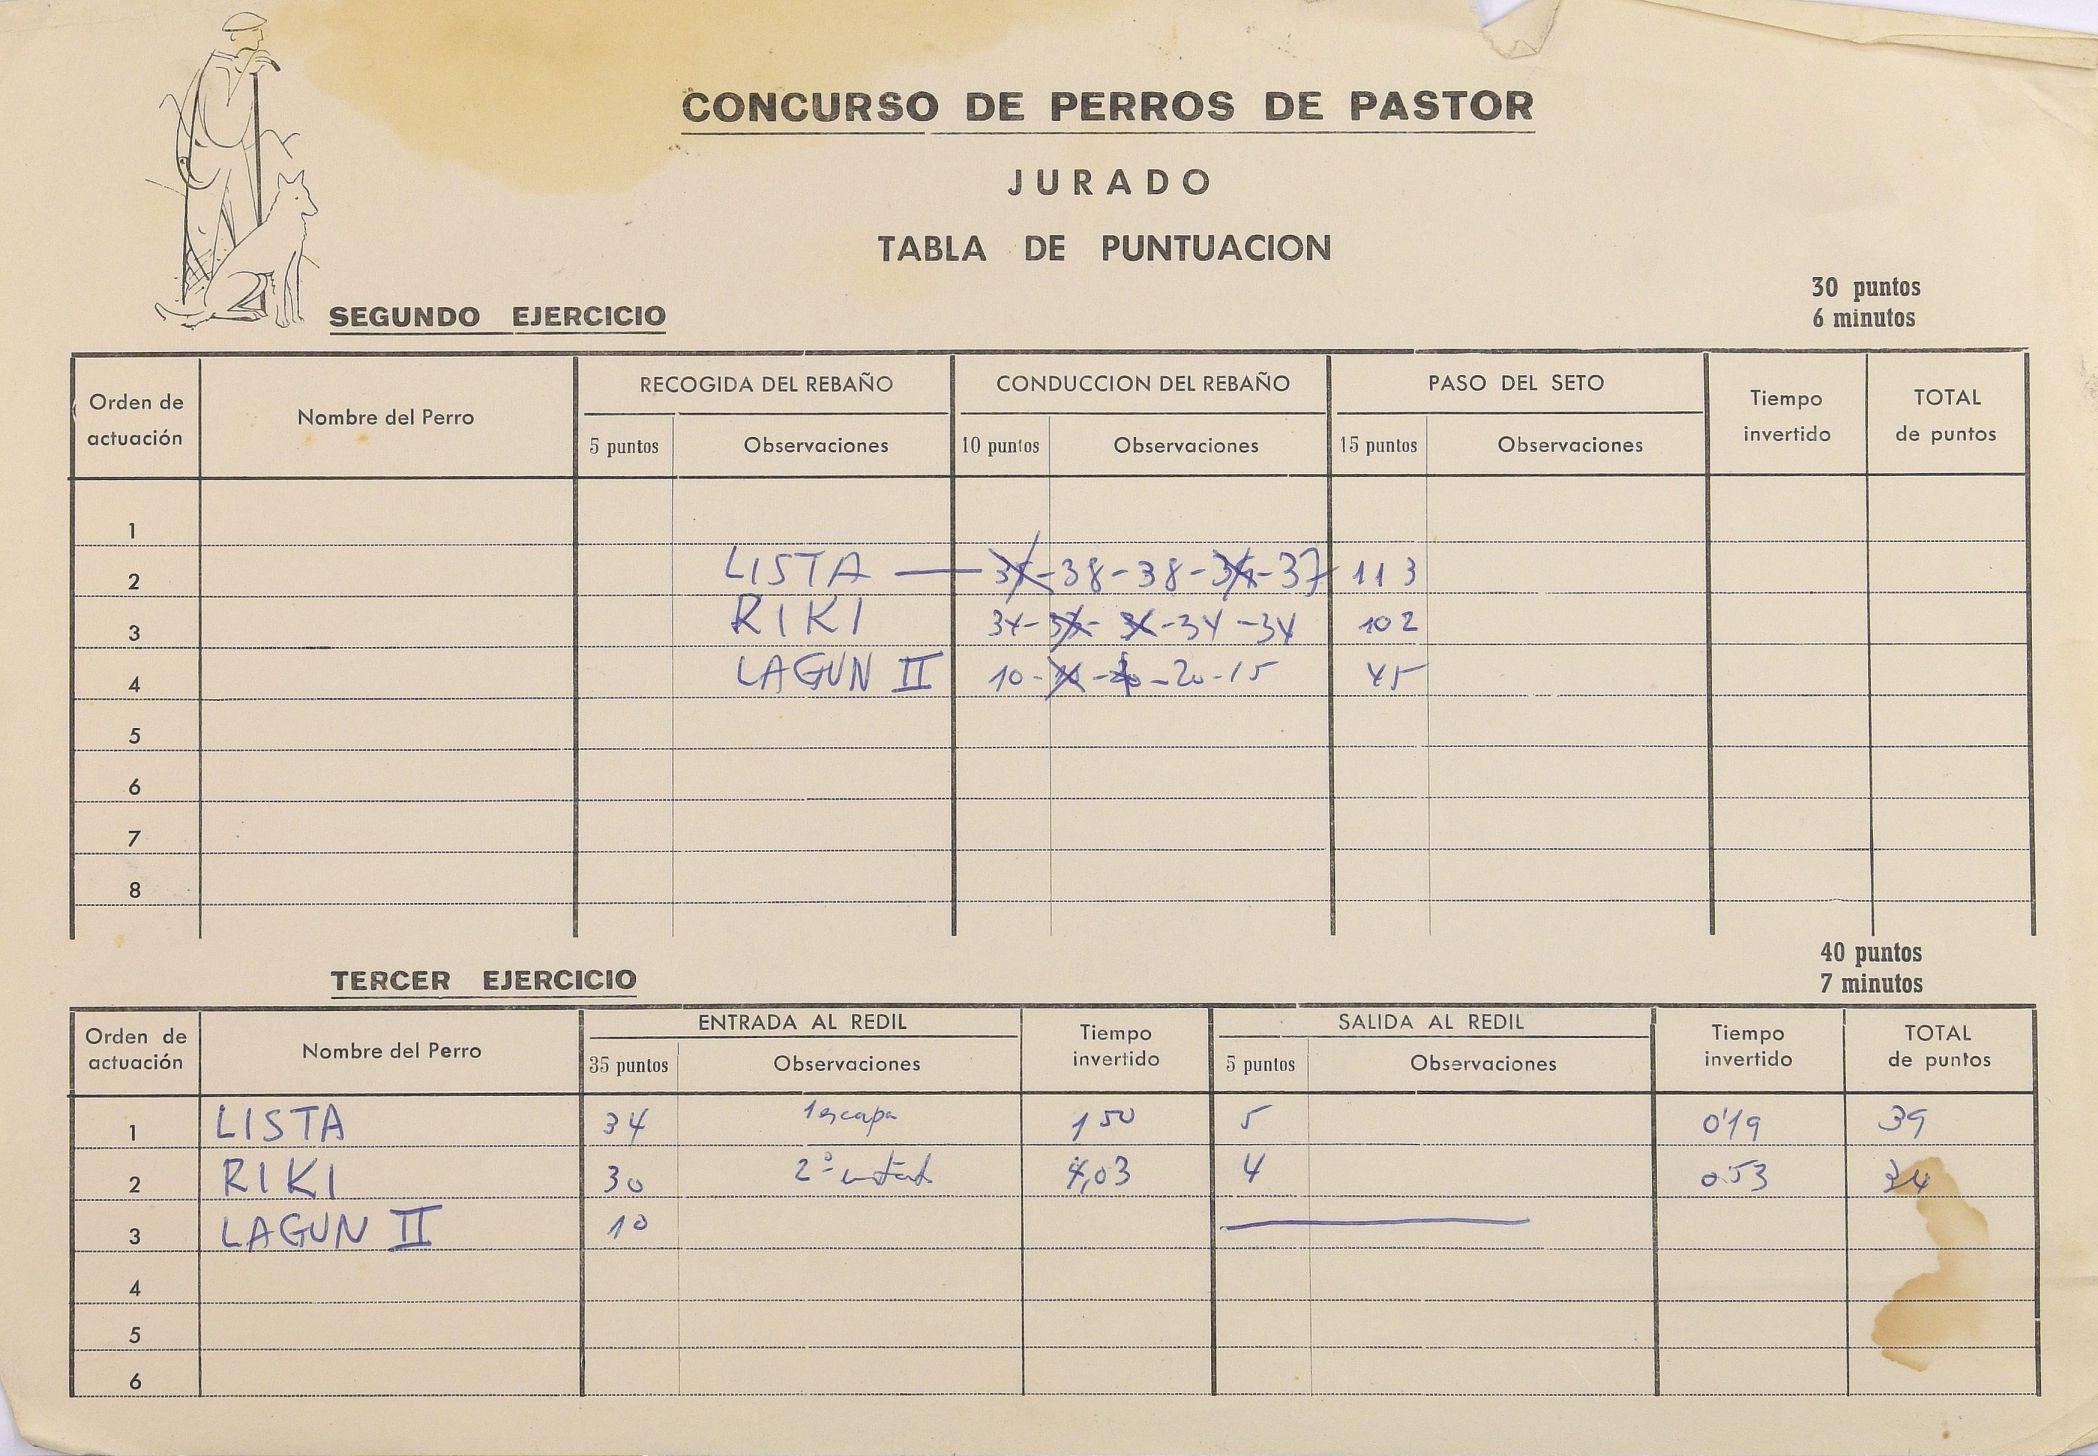 CONCURSO DE PERROS DE PASTOR
JURADO
TABLA DE PUNTUACION
30 puntos
6 minutos
SEGUNDO EJERCICIO
Orden de actuación Nombre del Perro RECOGIDA DEL REBAÑO CONDUCCION DEL REBAÑO PASO DEL SETO Tiempo invertido TOTAL de puntos
5 puntos Observaciones 10 puntos Observaciones 15 puntos Observaciones
1
2 LISTA — -38-38- -37 113
3 RIKI 34- - -34-34 102
4 LAGUN II 10- - -20-15 45
5
6
7
8
40 puntos
7 minutos
TERCER EJERCICIO
Orden de actuación Nombre del Perro ENTRADA AL REDIL Tiempo invertido SALIDA AL REDIL Tiempo invertido TOTAL de puntos
35 puntos Observaciones 5 puntos Observaciones
1 LISTA 34 1 escapa 1 50 5 0'19 39
2 RIKI 30 2ª 4,03 4 0'53 34
3 LAGUN II 10
4
5
6